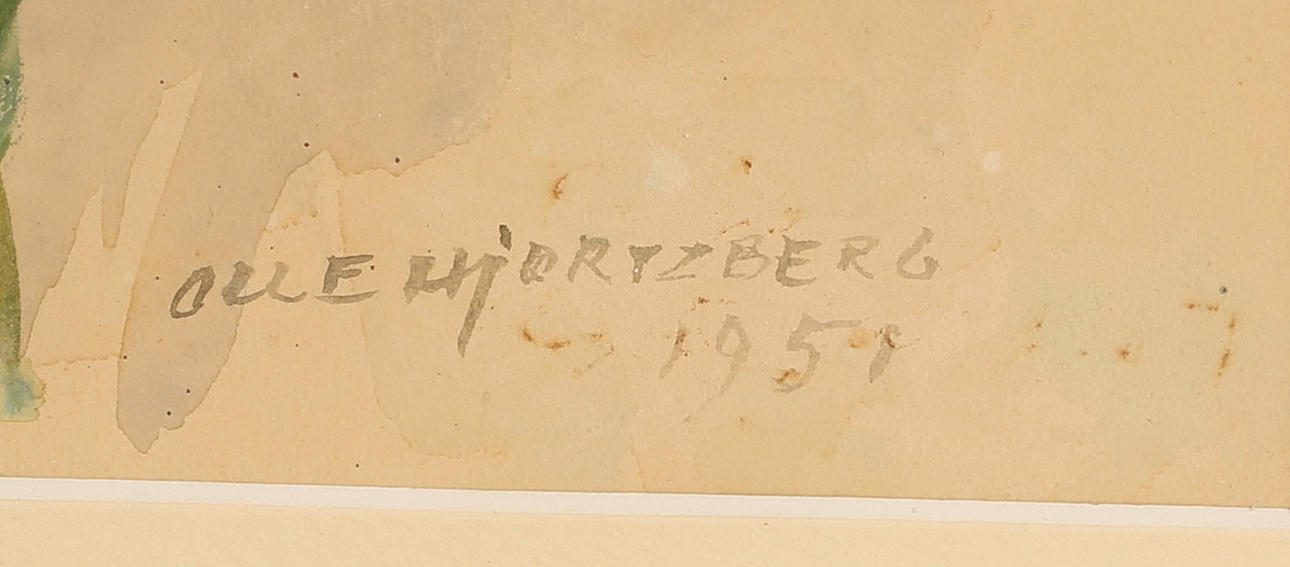 OLLE HJORTZBERG
1951